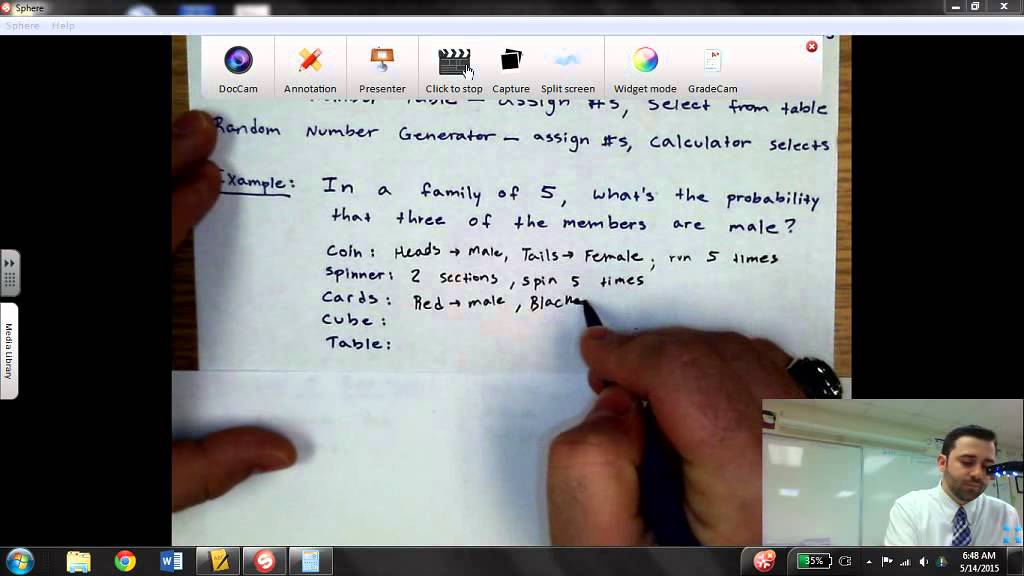 Sphere
Sphere Help
DocCam Annotation Presenter Click to stop Capture Split screen Widget mode GradeCam
Table – assign #s, select from table
Random Number Generator – assign #s, calculator selects
Example: In a family of 5, what's the probability
that three of the members are male?
Coin: Heads → male, Tails → Female; run 5 times
Spinner: 2 sections, spin 5 times
Cards: Red → male, Black
Cube:
Table:
Media Library
35%
6:48 AM
5/14/2015